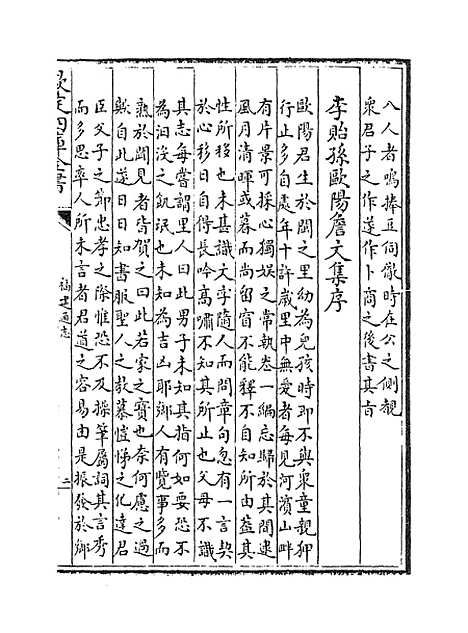 八人者鳴捧豆伺徹時在公之側觀
衆君子之作遂作卜商之後書其旨
李貽孫歐陽詹文集序
歐陽君生於閩之里幼為兒孩時即不與衆童親狎
行止多自處年十許嵗里中無愛者每見河濱山畔
有片景可採心獨娱之常執卷一編忘歸於其間逮
風月清暉或暮而尚留窅不能釋不自知所由盖其
性所移也未甚識文字隨人而問章句忽有一言契
於心移日自得長吟高嘯不知其所止也父母不識
其志每嘗謂里人曰此男子未知其指何如要恐不
為汨沒之飢氓也未知為吉凶耶鄉人有覽事多而
熟於聞見者皆賀之曰此若家之寳也奈何慮之過
歟自此遂日日知書服聖人之教慕愷悌之化達君
臣父子之節忠孝之際惟恐不及操筆屬詞其言秀
而多思率人所未言者君道之容易由是振發於鄉
欽定四庫全書
福建通志
二